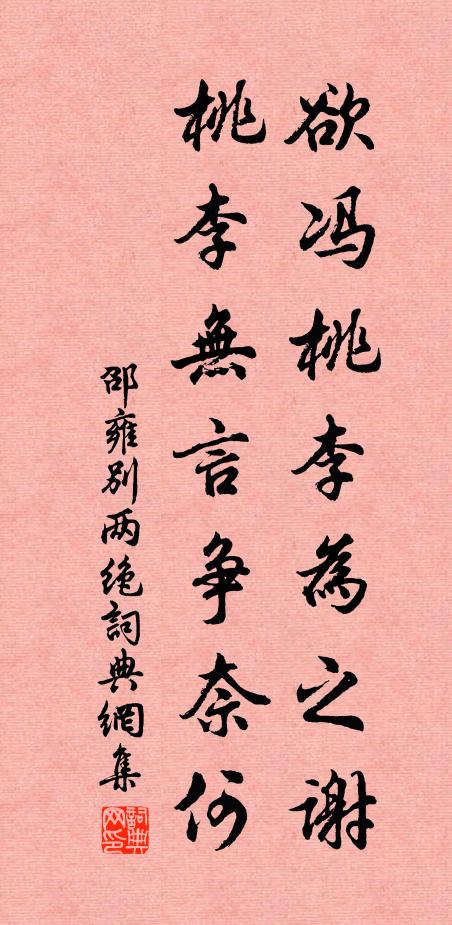 欲冯桃李為之谢
桃李無言争奈何
邵雍别两绝詞典網集
詞典网印